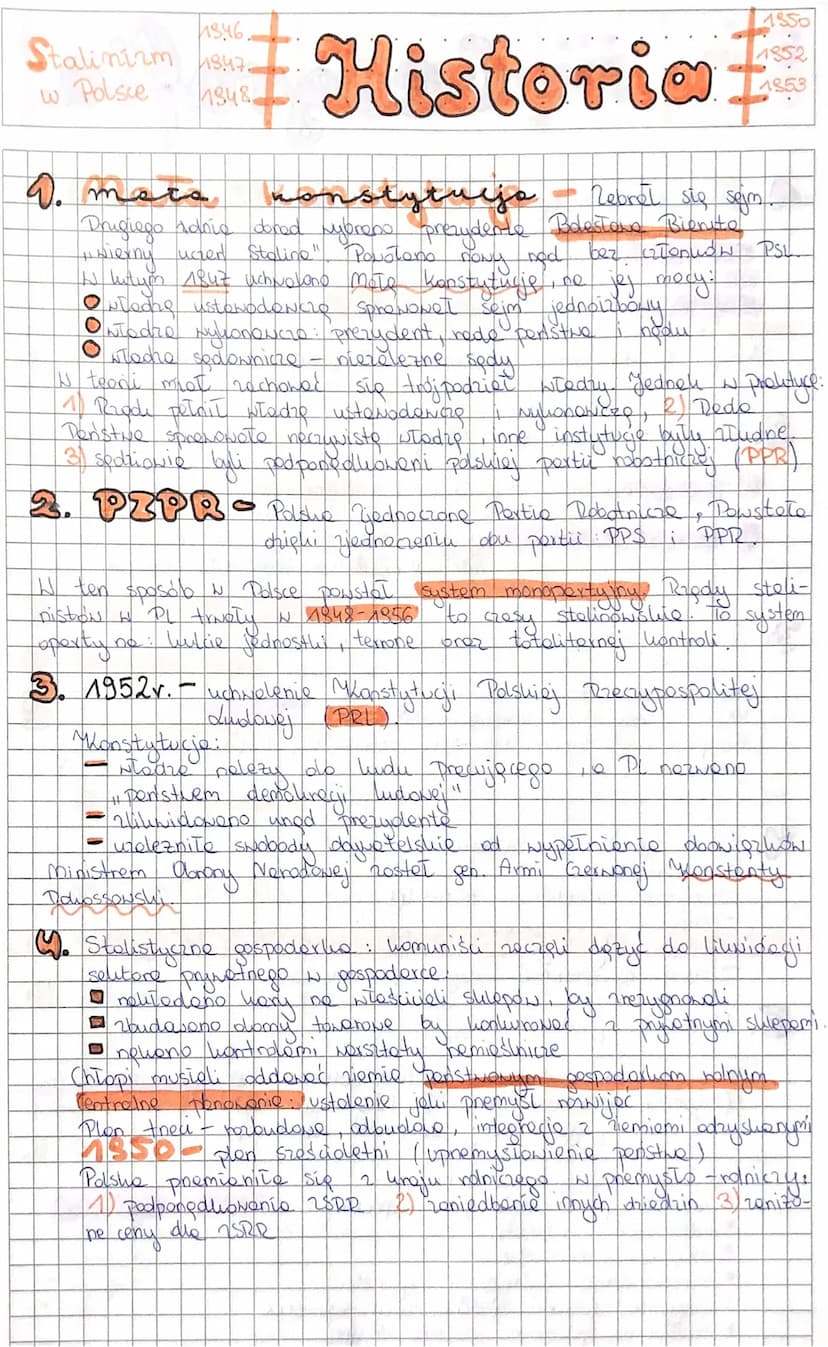 Stalinizm
w Polsce
1946
1947
1948
Historia
1950
1952
1953
1. Mała konstytucja – Zebrał się sejm.
Drugiego zdnia obrad wybrano prezydenta Bolesława Bieruta
„wierny uczeń Stalina" Powołano nowy rząd bez członków PSL.
W lutym 1947 uchwalono Małą Konstytucję, na jej mocy:
• władzę ustawodawczą sprawował sejm jednoizbowy
• władza wykonawcza: prezydent, rada państwa i rządu
• władza sądownicza – niezależne sądy
W teorii miał zachować się trójpodział władzy. Jednak w praktyce:
1) Rząd pełnił władzę ustawodawczą i wykonawczą, 2) Rada
Państwa sprawowała rzeczywistą władzę, inne instytucje były złudne,
3) sędziowie byli podporządkowani polskiej partii robotniczej (PPR)
2. PZPR – Polska Zjednoczona Partia Robotnicza, Powstała
dzięki zjednoczeniu obu partii: PPS i PPR.
W ten sposób w Polsce powstał system monopartyjny. Rządy stali-
nistów w PL trwały w 1948-1956 to czasy stalinowskie. To system
oparty na: kulcie jednostki, terrorze oraz totalitarnej kontroli.
3. 1952r. – uchwalenie Konstytucji Polskiej Rzeczypospolitej
Ludowej (PRL).
Konstytucja:
– władza należy do ludu pracującego, a PL nazwano
„państwem demokracji ludowej"
– zlikwidowano urząd prezydenta
– uzależniła swobody obywatelskie od wypełniania obowiązków
Ministrem Obrony Narodowej został gen. Armi Czerwonej Konstanty
Rokossowski.
4. Stalistyczna gospodarka: komuniści zaczęli dążyć do likwidacji
sektora prywatnego w gospodarce:
▪ nakładano kary na właścicieli sklepów, by zrezygnowali
▪ zbudowano domy towarowe by konkurować z prywatnymi sklepami.
▪ nękano kontrolami warsztaty rzemieślnicze
Chłopi musieli oddawać ziemię państwowym gospodarkom rolnym
Centralne planowanie: ustalenie jaki przemysł rozwijać
Plan trzeci – rozbudowa, odbudowa, integracja z ziemiami odzyskanymi
1950 – plan sześcioletni (uprzemysłowienie państwa)
Polska przemieniła się z kraju rolniczego w przemysło-rolniczy:
1) podporządkowania ZSRR 2) zaniedbanie innych dziedzin 3) zaniżo-
ne ceny dla ZSRR